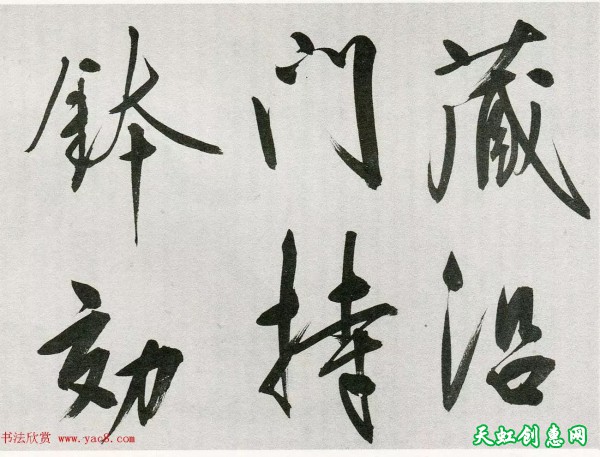 藏沿
门持
钵
効
书法欣赏 www.yac8.com
天虹创惠网